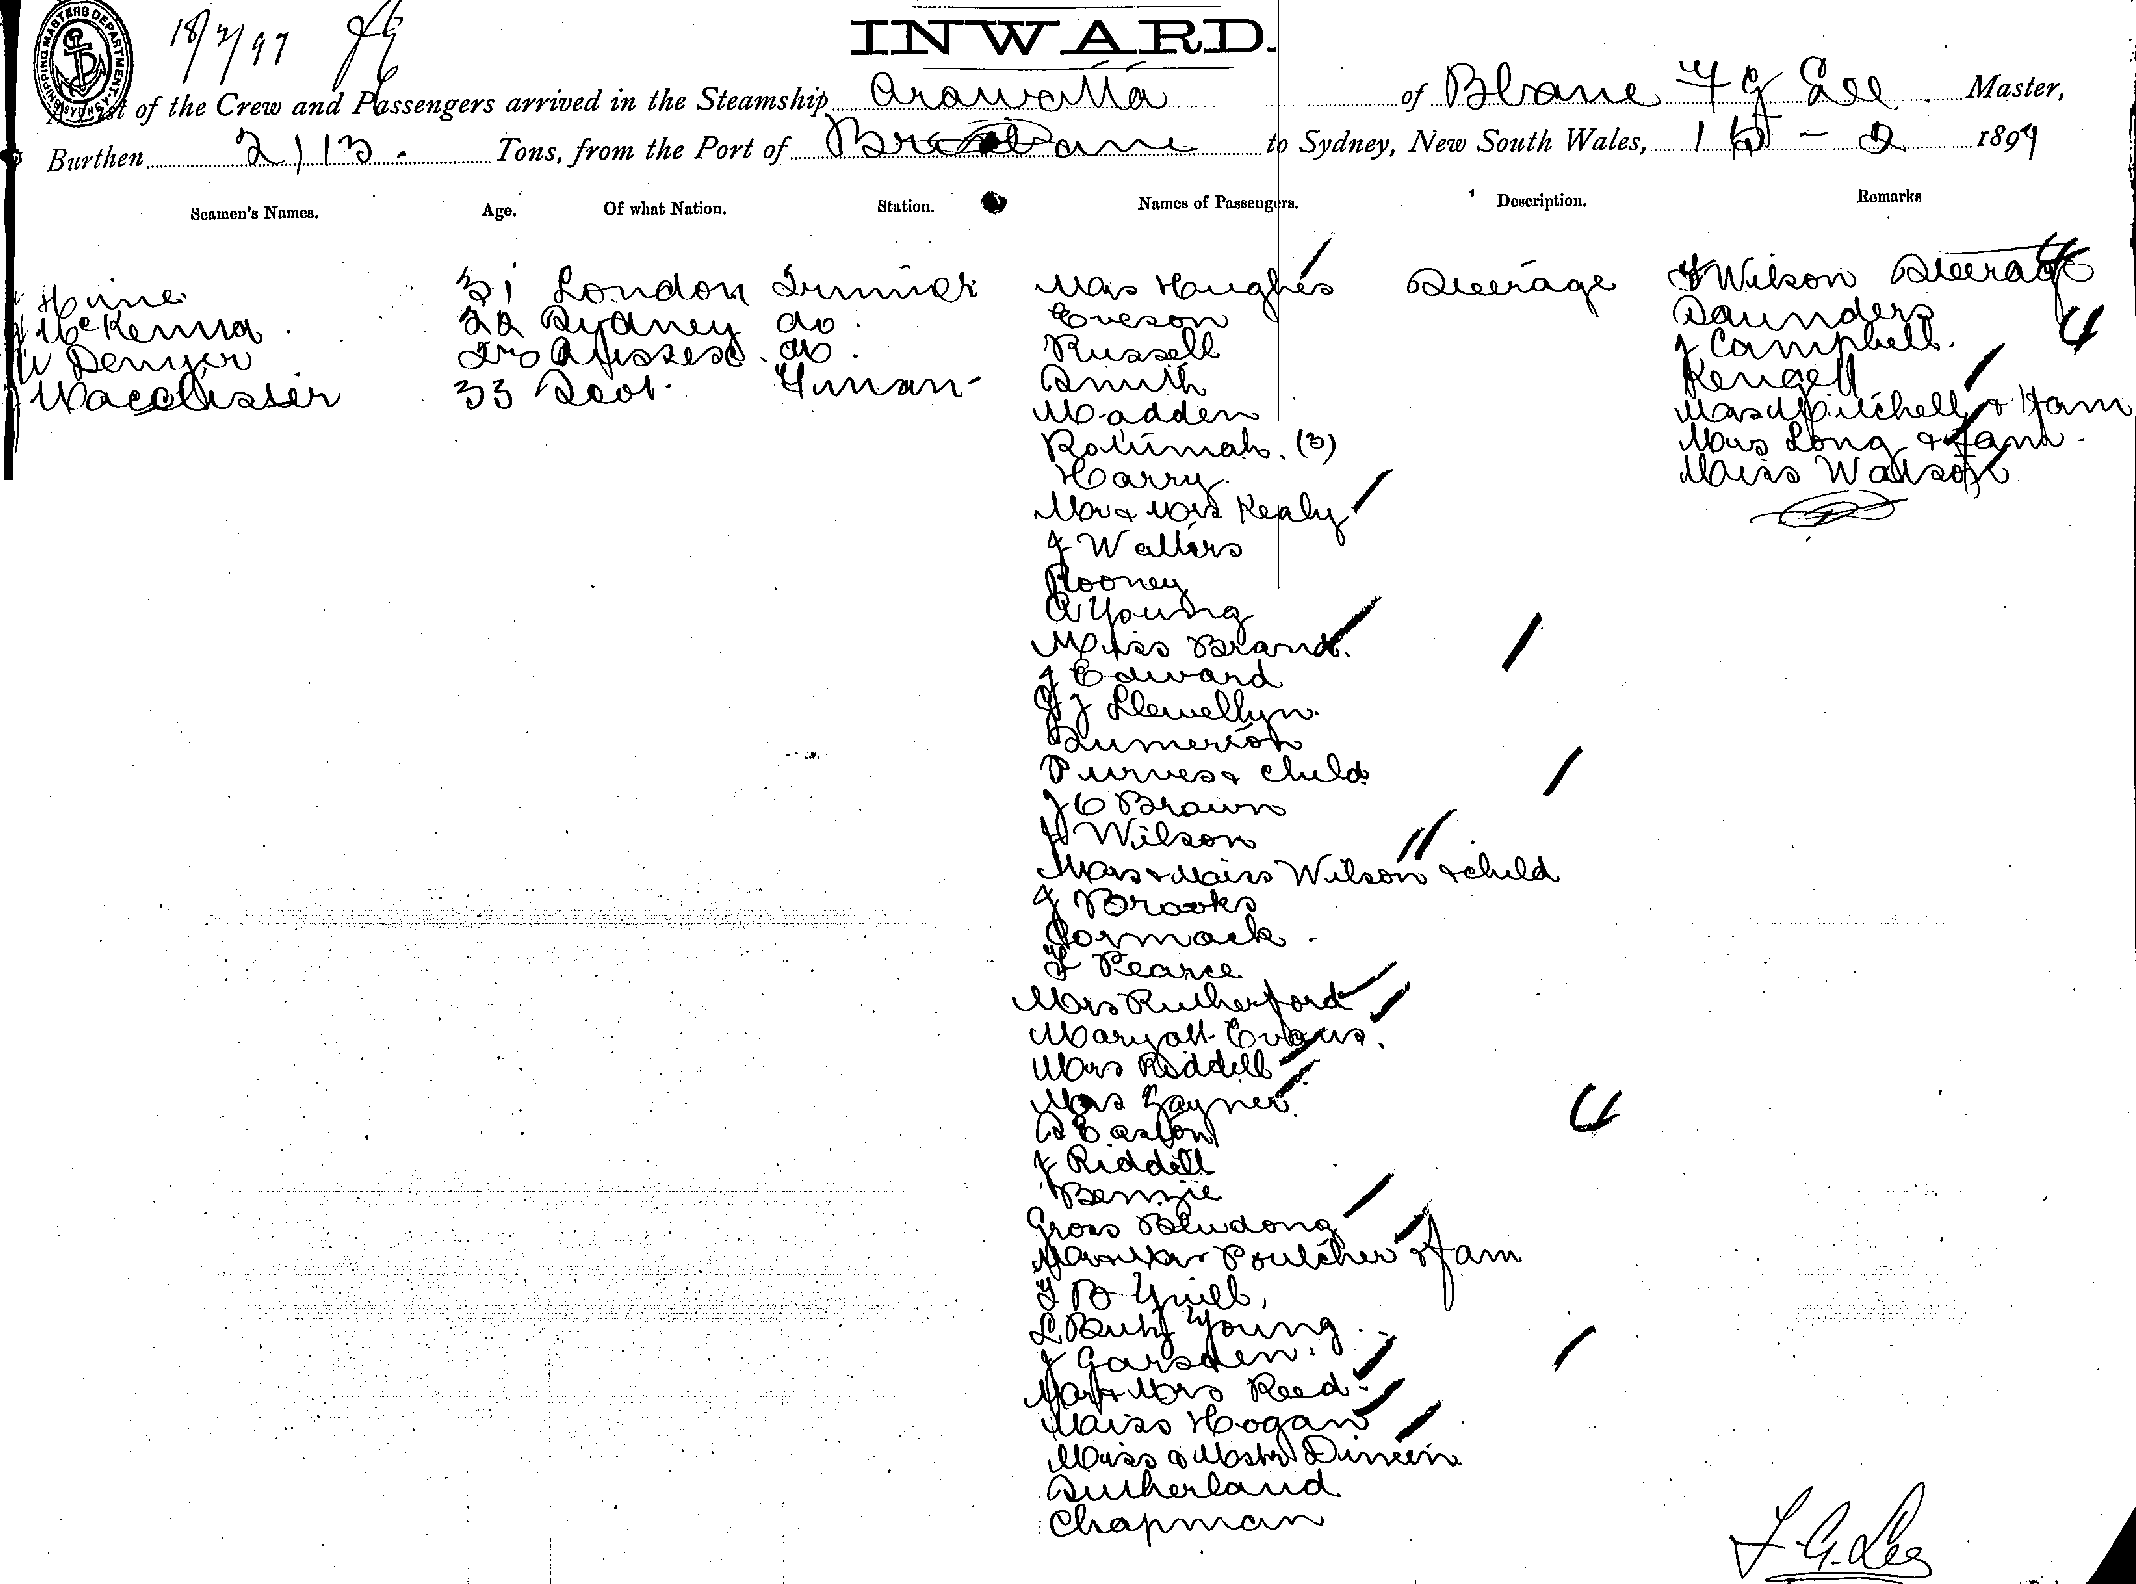 SHIPPING MASTERS DEPARTMENT SYDNEY
18/2/97
INWARD.
A List of the Crew and Passengers arrived in the Steamship Arawatta of Bbane F G Lee Master,
Burthen 2113. Tons, from the Port of Brisbane to Sydney, New South Wales, 18 - 2 1897
Seamen's Names. Age. Of what Nation. Station. Names of Passengers. Description. Remarks
Hine 31 London Trimmer
J McKenna 22 Sydney do.
W Denyer Sussex do.
J Macalister 33 Scot. Fireman
Mrs Hughes Steerage
Eveson
Russell
Smith
Madden
Rotumah. (3)
Harry.
Mr & Mrs Kealy
J Walters
Rooney
A Young
Miss Brand.
J Edward
J Llewellyn.
Sumerton
Purves & child
J C Brown
H Wilson
Mrs & Miss Wilson & child
J Brooks
Cormack.
F Pearce
Mrs Rutherford
Evans.
Mrs Riddell
Mrs Gayner.
Easton
J Riddell
Benzie
Gross
Mr & Mrs Poulcher & fam
F B
L Ruby Young
J Garsden.
Mr & Mrs Reed.
Miss Hogan
Miss & Mstr Dineen
Sutherland
Chapman
H Wilson Steerage
4
Saunders
J Campbell. 4
Kengell
Mrs Mitchell & Fam
Mrs Long & fam.
Miss Watson
4
F. G. Lee